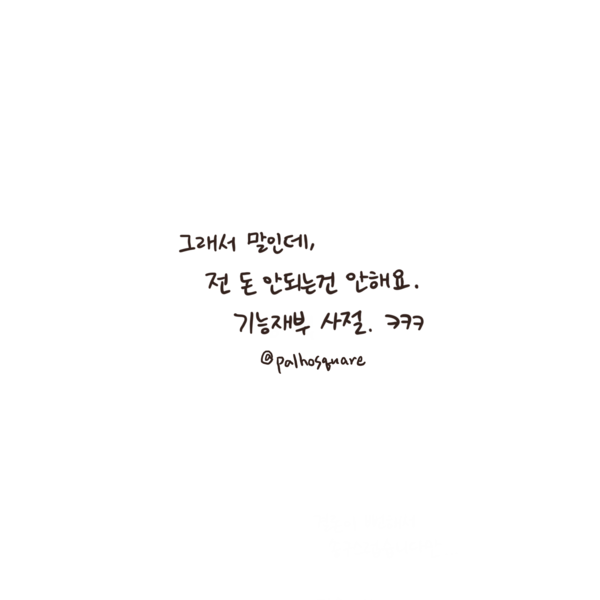 그래서 말인데,
전 돈 안되는건 안해요.
기능재부 사절. ㅋㅋㅋ
@palhosquare